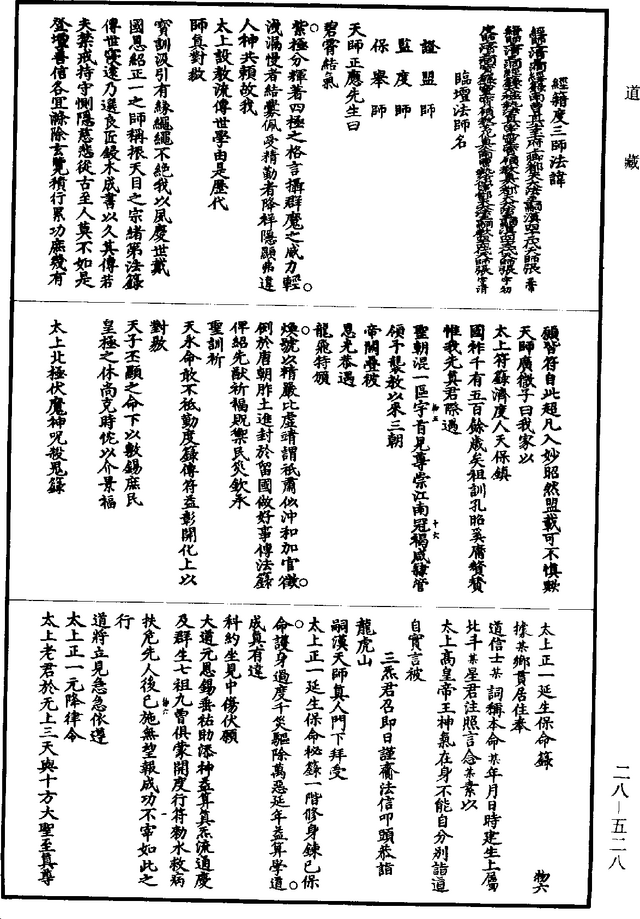 道藏
經籍度三師法諱
臨壇法師名
證盟師
監度師
保舉師
天師正應先生曰
碧霄結氣
紫極分輝著四極之格言攝群魔之威力輕
洩漏慢者結釁佩受精勤者降祥隱顯弗違
人神共賴故我
太上設教流傳世學由是歷代
師真對敭
寶訓汲引有緣繩繩不絕我以夙慶世戴
國恩紹正一之師稱振天目之宗緒第法籙
傳世寖遠乃選良匠鋟木成書以久其傳若
夫禁戒持守惻隱慈愍從古至人莫不如是
登壇善信各宜滌除玄覽積行累功庶幾有
願皆符自此超凡入妙昭然盟載可不慎歟
天師廣微子曰我家以
太上符籙濟度人天保鎮
國祚千有五百餘歲矣祖訓孔昭奚庸贊贊
惟我先真君際遇
聖朝混一區宇首見尊崇江南冠褐咸隸管
領予襲教以來三朝
帝闕疊被
恩光恭遇
龍飛特頒
煥號以精嚴比虛靖謂祇肅似沖和加官徵
例於唐朝胙土進封於留國做好事傳法籙
俾紹先猷祈福既禦民災欽承
聖訓祈
天永命敢不祗勤度籙傳符益彰開化上以
對敭
天子丕顯之命下以敷錫庶民
皇極之休尚克時忱以介景福
太上北極伏魔神呪殺鬼籙
太上正一延生保命籙
物六
據某鄉貫居住奉
道信士某詞稱本命某年月日時建生上屬
北斗某星君注照言念某素以
太上高皇帝王神氣在身不能自分別詣道
自實言被
三炁君召即日謹齎法信叩頭恭詣
龍虎山
嗣漢天師真人門下拜受
太上正一延生保命祕籙一階修身鍊己保
命護身過度千災驅除萬惡延年益算學道
成真有違
科約坐見中傷伏願
大道元恩錫垂祐助添神益算真炁流通慶
及群生七祖九曾俱蒙開度行符勑水救病
扶危先人後己施無望報成功不宰如此之
行
道將立見急急依遵
太上正一元降律令
太上老君於无上三天與十方大聖至真尊
二八—五二八